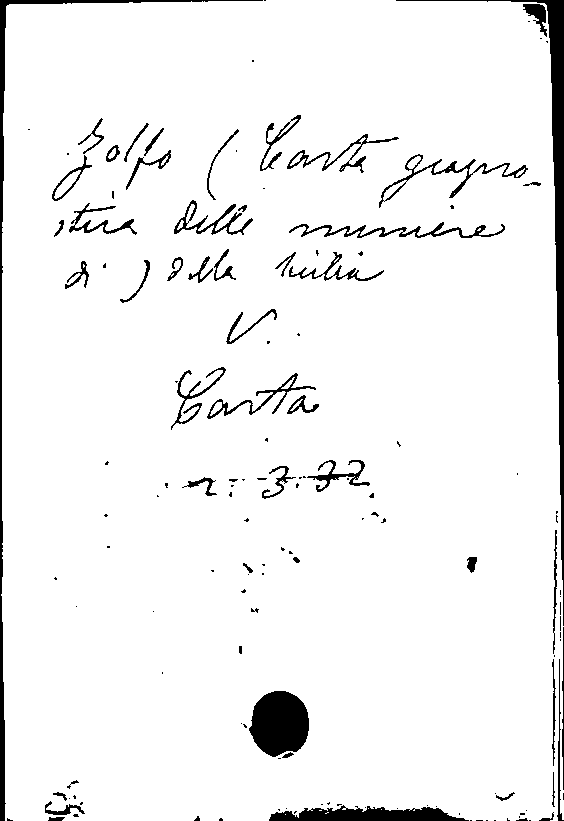 Zolfo ( Carta geogno-
stica delle miniere
di ) della Sicilia
V.
Carta
2. 3. 32